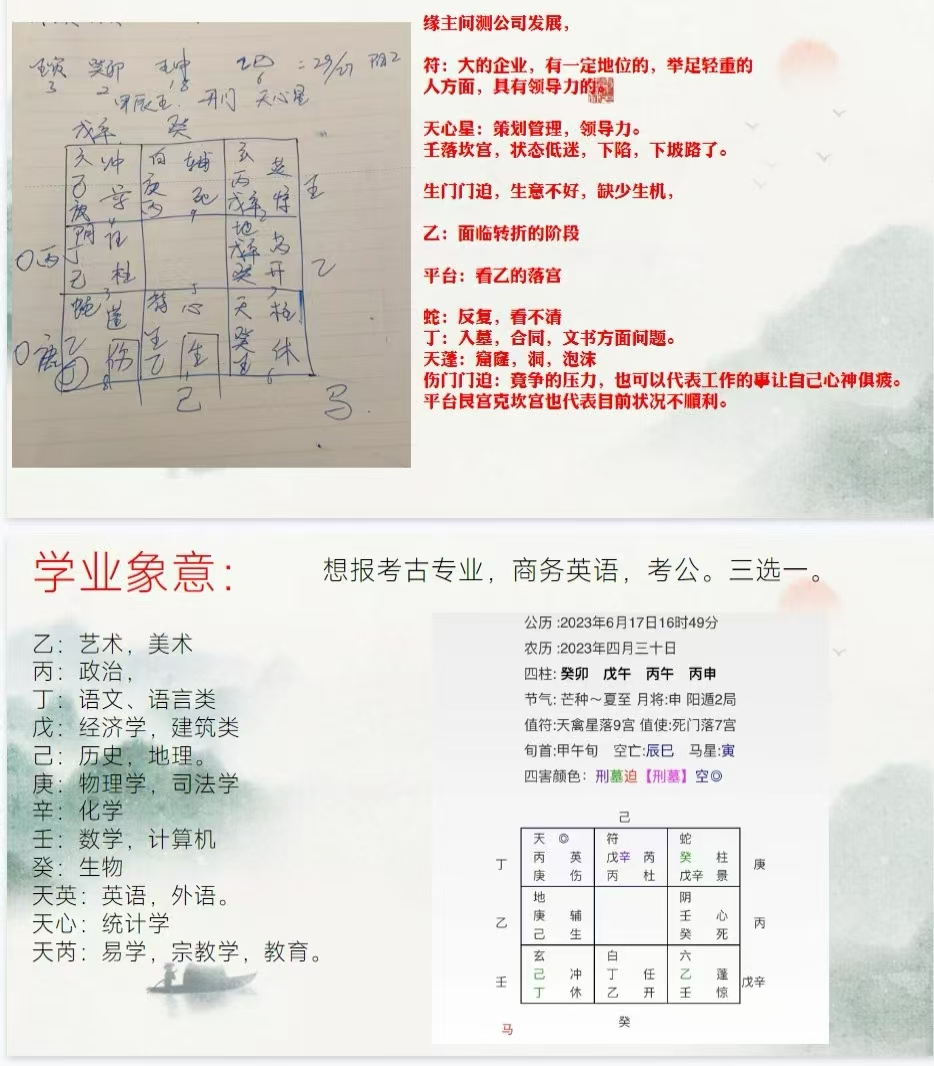 缘主问测公司发展，
符：大的企业，有一定地位的，举足轻重的
人方面，具有领导力的。
天心星：策划管理，领导力。
壬落坎宫，状态低迷，下陷，下坡路了。
生门门迫，生意不好，缺少生机，
乙：面临转折的阶段
平台：看乙的落宫
蛇：反复，看不清
丁：入墓，合同，文书方面问题。
天蓬：窟窿，洞，泡沫
伤门门迫：竞争的压力，也可以代表工作的事让自己心神俱疲。
平台艮宫克坎宫也代表目前状况不顺利。
癸卯
甲辰壬 开门 天心星
戊辛 癸
白 辅
壬
乙
己
马
学业象意：
想报考古专业，商务英语，考公。三选一。
乙：艺术，美术
丙：政治，
丁：语文、语言类
戊：经济学，建筑类
己：历史，地理。
庚：物理学，司法学
辛：化学
壬：数学，计算机
癸：生物
天英：英语，外语。
天心：统计学
天芮：易学，宗教学，教育。
公历 :2023年6月17日16时49分
农历 :2023年四月三十日
四柱: 癸卯 戊午 丙午 丙申
节气: 芒种～夏至 月将:申 阳遁2局
值符:天禽星落9宫 值使:死门落7宫
旬首:甲午旬 空亡:辰巳 马星:寅
四害颜色：刑墓迫【刑墓】空◎
己
天 ◎ 符 蛇
丁 丙 英 戊辛 芮 癸 柱 庚
庚 伤 丙 杜 戊辛 景
地 阴
乙 庚 辅 壬 心 丙
己 生 癸 死
玄 白 六
壬 己 冲 丁 任 乙 蓬 戊辛
丁 休 乙 开 壬 惊
马 癸